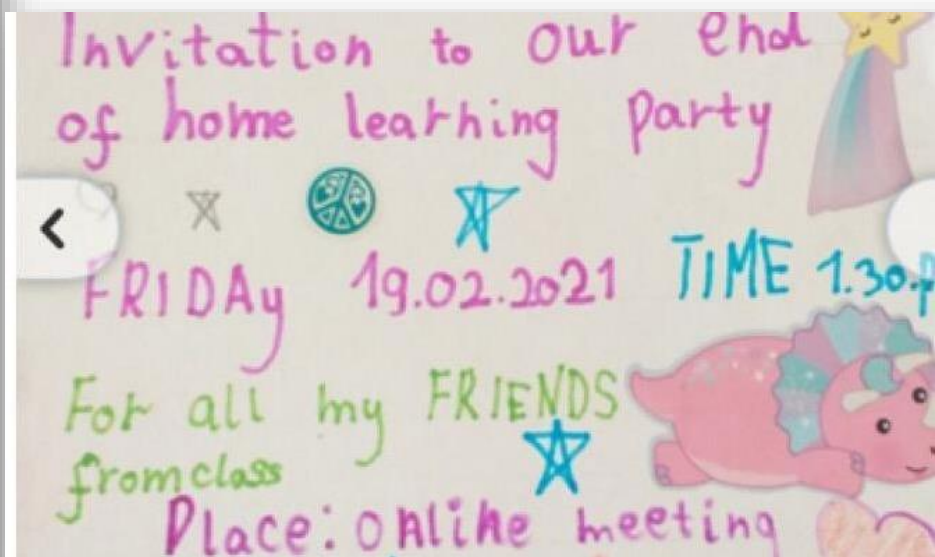 Invitation to our end
of home learning party
FRIDAy 19.02.2021 TIME 1.30.p
For all my FRIENDS
from class
Place: online meeting